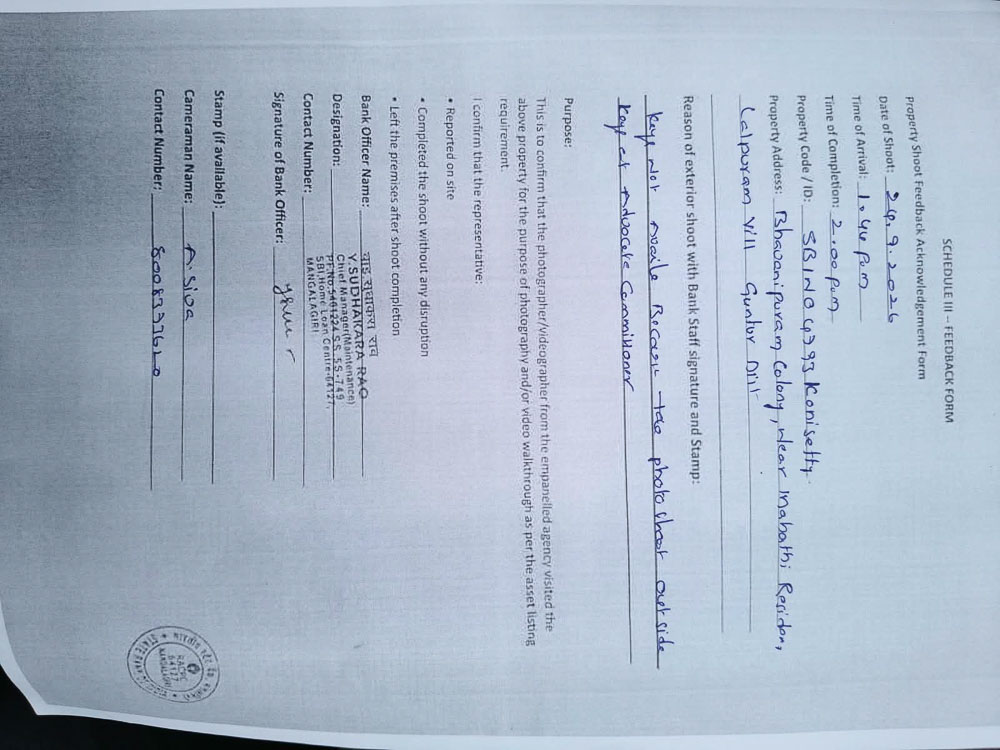 SCHEDULE III – FEEDBACK FORM
Property Shoot Feedback Acknowledgement Form
Date of Shoot: 24.9.2026
Time of Arrival: 1.44 pm
Time of Completion: 2.00 pm
Property Code / ID: SBIN04793 Konisetty
Property Address: Bhavanipuram Colony, Near Mabathi Residon,
Lalpuram Vill Guntur Dist
Reason of exterior shoot with Bank Staff signature and Stamp:
keys Not Availe Becasu photo shoot out side
keys at Advocate Commitioner
Purpose:
This is to confirm that the photographer/videographer from the empanelled agency visited the
above property for the purpose of photography and/or video walkthrough as per the asset listing
requirement.
I confirm that the representative:
• Reported on site
• Completed the shoot without any disruption
• Left the premises after shoot completion
Bank Officer Name:
Y.SUDHAKARA RAO
Designation: Chief Manager(Maintenance)
PF.No.5481224 SS, SS-749
Contact Number: SBI,Home Loan Centre-64127,
MANGALAGIRI
Signature of Bank Officer:
Stamp (if available):
Cameraman Name: A. Siva
Contact Number: 8008337620
RACPC
64127